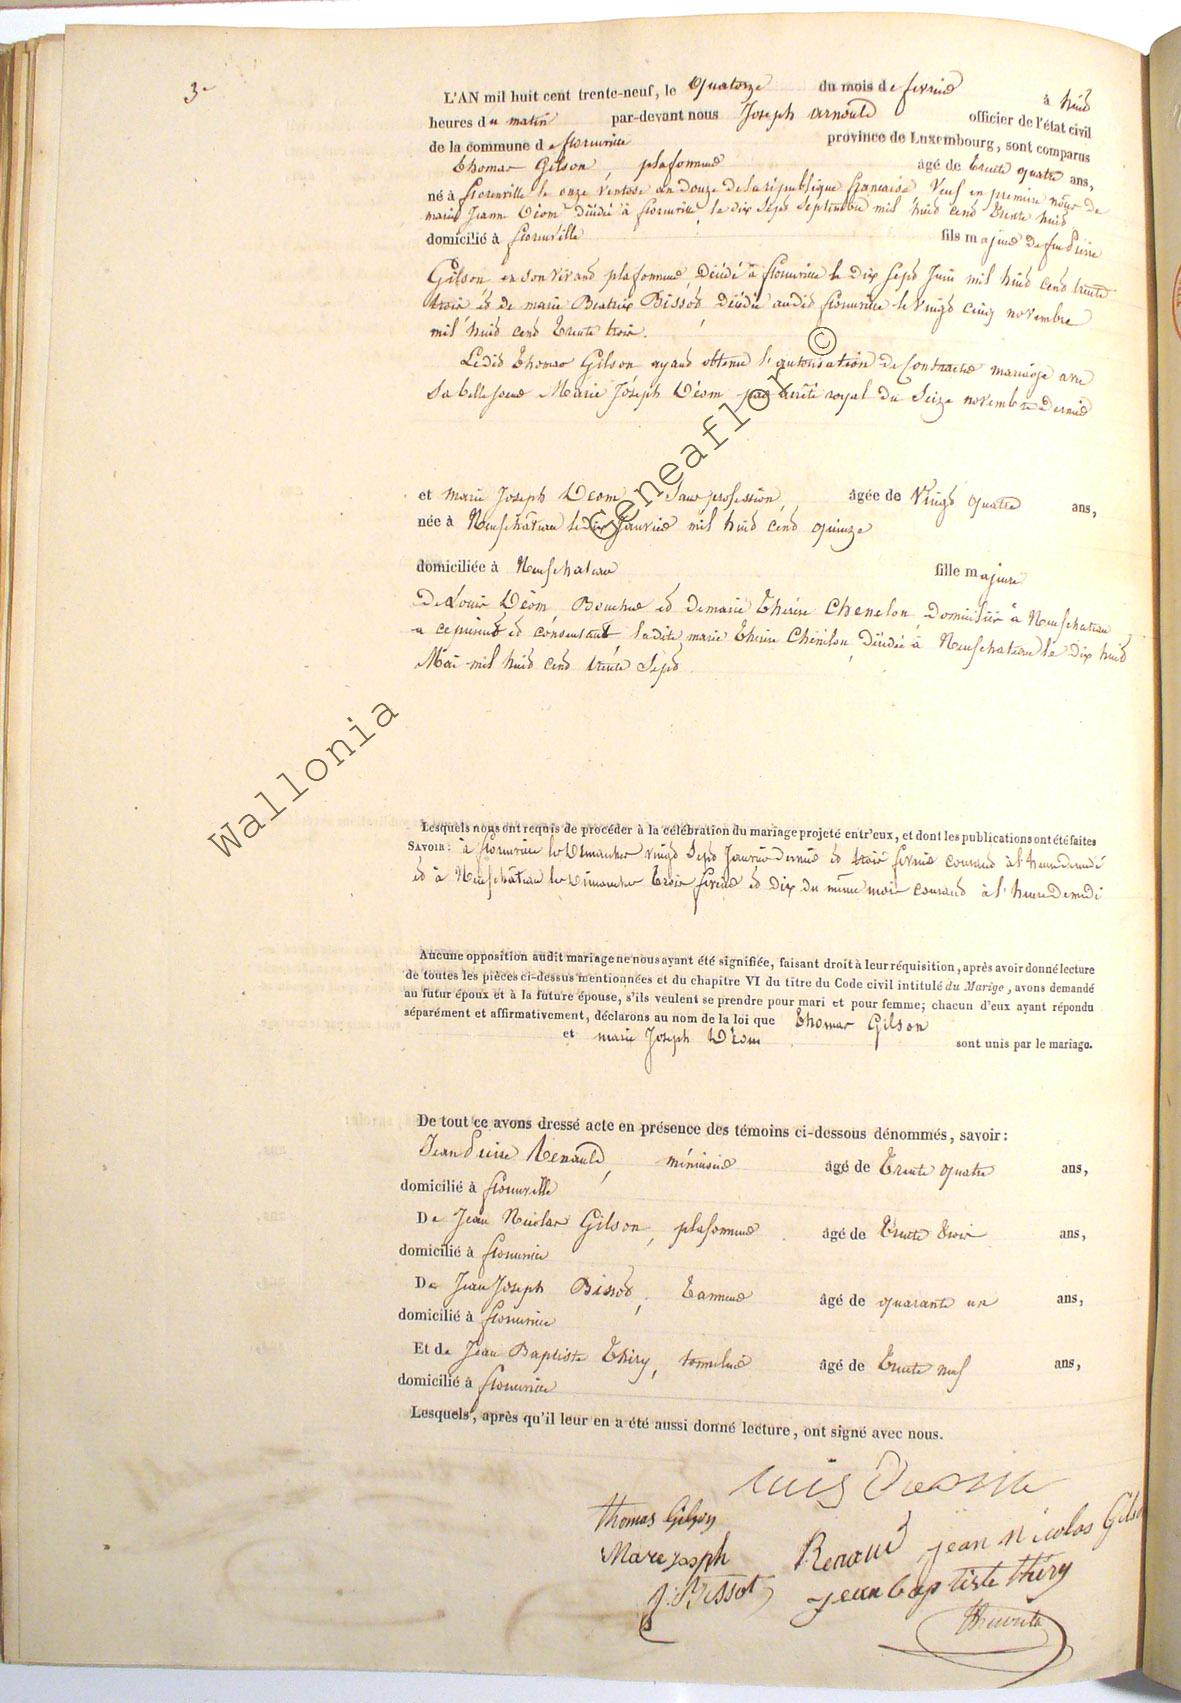 3.
L'AN mil huit cent trente-neuf, le quatorze du mois de fevrier à huit
heures du matin par-devant nous Joseph Arnould officier de l'état civil
de la commune de florenville province de Luxembourg, sont comparus
Thomas Gilson, plafonneur âgé de trente quatre ans,
né à florenville le onze ventose an douze de la république francaise Veuf en premiere nôce de
marie Jeanne Déom décédée à florenville le dix sept septembre mil huit cent trente huit
domicilié à florenville fils majeur de feu Pierre
Gilson en son vivant plafonneur, décédé à florenville le dix sept Juin mil huit cent trente
trois et de marie Beatrix Bissot décédée audit florenville le vingt cinq novembre
mil huit cent trente trois.
Ledit Thomas Gilson ayant obtenu l'autorisation de contracter mariage avec
sa belle soeur Marie Joseph Déom par arrêté royal du seize novembre dernier
et marie Joseph Déom, sans profession, âgée de vingt quatre ans,
née à Neufchâteau le dix Janvier mil huit cent quinze
domiciliée à Neufchateau fille majeure
de Louis Déom Boucher et de marie Thérèse Chenelon, domiciliés à Neufchateau
a ce présent et consentant ladite marie Thérèse Chénelon, décédée à Neufchateau le dix huit
Mai mil huit cent trente sept
Lesquels nous ont requis de procéder à la célébration du mariage projeté entr'eux, et dont les publications ont été faites
SAVOIR: à florenville les Dimanches vingt sept Janvier dernier et trois fevrier courant à l'heure de midi
et à Neufchâteau les Dimanches trois fevrier et dix du même mois courant à l'heure de midi
Aucune opposition audit mariage ne nous ayant été signifiée, faisant droit à leur réquisition, après avoir donné lecture
de toutes les pièces ci-dessus mentionnées et du chapitre VI du titre du Code civil intitulé du Marige, avons demandé
au futur époux et à la future épouse, s'ils veulent se prendre pour mari et pour femme; chacun d'eux ayant répondu
séparément et affirmativement, déclarons au nom de la loi que Thomas Gilson
et marie Joseph Déom sont unis par le mariage.
De tout ce avons dressé acte en présence des témoins ci-dessous dénommés, savoir:
Jean Pierre Renauld, ménuisier âgé de trente quatre ans,
domicilié à florenville
De Jean Nicolas Gilson, plafonneur âgé de trente trois ans,
domicilié à florenville
De Jean Joseph Bissot, tanneur âgé de quarante un ans,
domicilié à florenville
Et de Jean Baptiste Thiry, tonnelier âgé de trente neuf ans,
domicilié à florenville
Lesquels, après qu'il leur en a été aussi donné lecture, ont signé avec nous.
Thomas Gilson
jean nicolos Gilso
Marie Joseph
J. Bissot
jean baptiste thiry
Wallonia Geneaflor ©